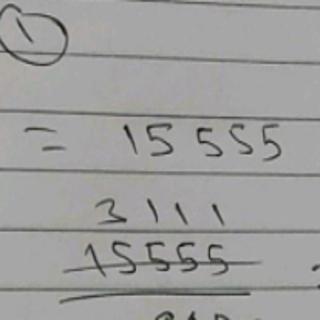 1
= 15555
3111
15555